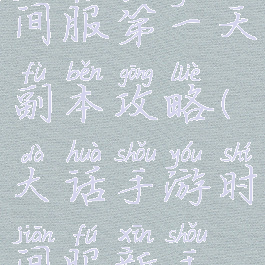 间服第一天
fù běn gōng lüè
副本攻略(
dà huà shǒu yóu shí
大话手游时
jiān fú xīn shǒu
间服新手